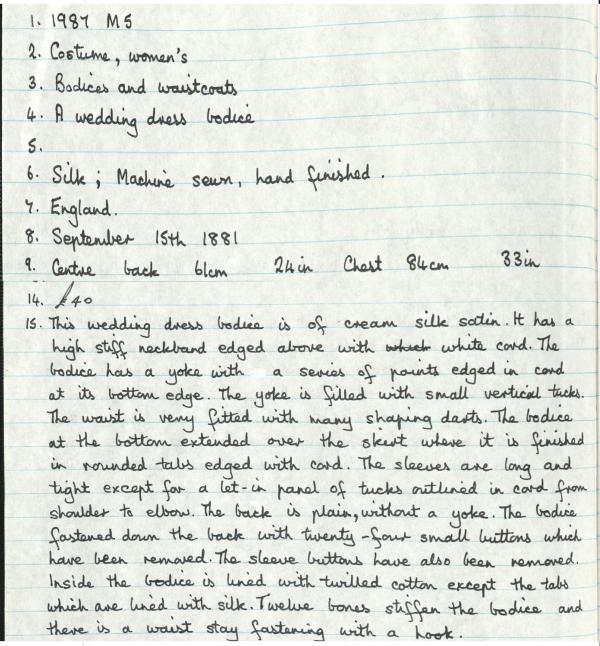 1. 1987 M5
2. Costume, women's
3. Bodices and waistcoats
4. A wedding dress bodice
5.
6. Silk; Machine sewn, hand finished.
7. England.
8. September 15th 1881
9. Centre back 61cm 24in Chest 84cm 33in
14. £40
15. This wedding dress bodice is of cream silk satin. It has a
high stiff neckband edged above with which white cord. The
bodice has a yoke with a series of points edged in cord
at its bottom edge. The yoke is filled with small vertical tucks.
The waist is very fitted with many shaping darts. The bodice
at the bottom extended over the skirt where it is finished
in rounded tabs edged with cord. The sleeves are long and
tight except for a let-in panel of tucks outlined in cord from
shoulder to elbow. The back is plain, without a yoke. The bodice
fastened down the back with twenty-four small buttons which
have been removed. The sleeve buttons have also been removed.
Inside the bodice is lined with twilled cotton except the tabs
which are lined with silk. Twelve bones stiffen the bodice and
there is a waist stay fastening with a hook.